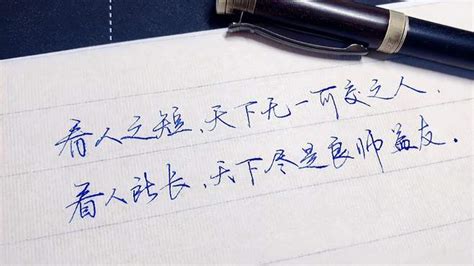 看人之短、天下无一可交之人.
看人所长、天下尽是良师益友.